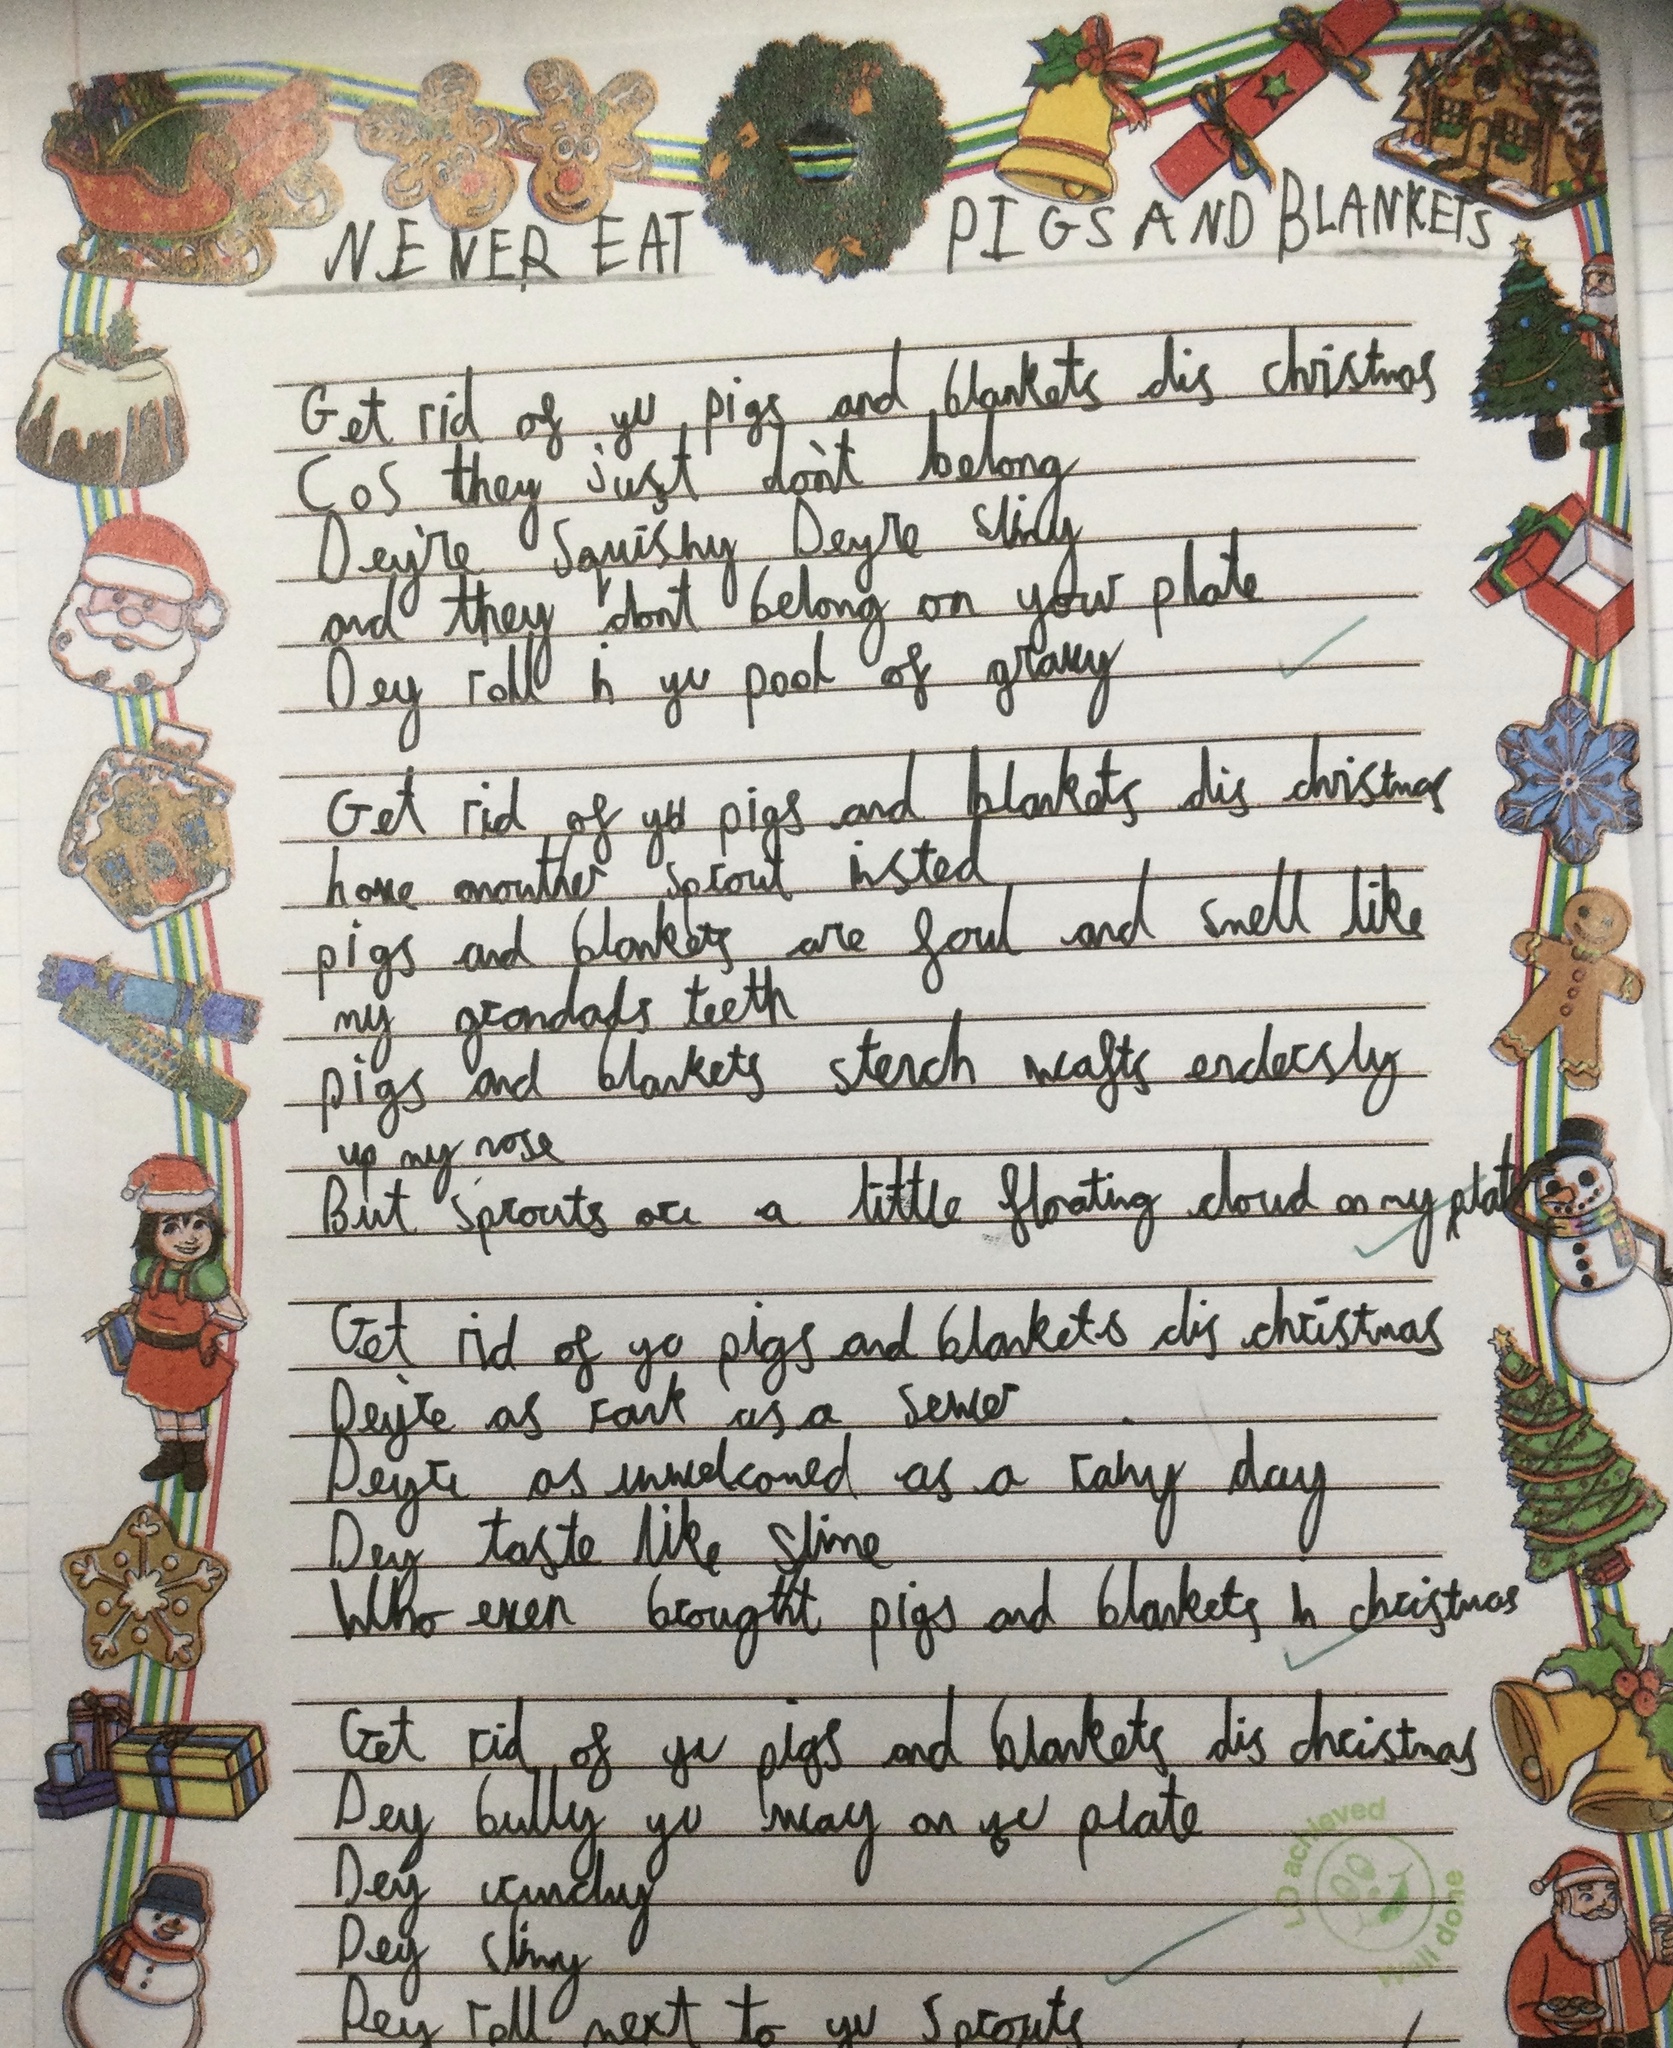 NEVER EAT PIGS AND BLANKETS
Get rid of yu pigs and blankets dis christmas
Cos they just don't belong
Dey're Squishy Deyre slimy
and they dont belong on your plate
Dey roll in yu pool of gravy
Get rid of yu pigs and blankets dis christmas
have anouther sprout insted
pigs and blankets are foul and smell like
my grandads teeth
pigs and blankets stench wafts endlessly
up my nose
But sprouts are a little floating cloud on my plate
Get rid of yo pigs and blankets dis christmas
Dey're as rank as a sewer
Deyre as unwelcomed as a rainy day
Dey taste like slime
Who even brought pigs and blankets in christmas
Get rid of yu pigs and blankets dis christmas
Dey bully yu way on yu plate
Dey crunchy
Dey slimy
Dey roll next to yu sprouts
LO achieved
Well done